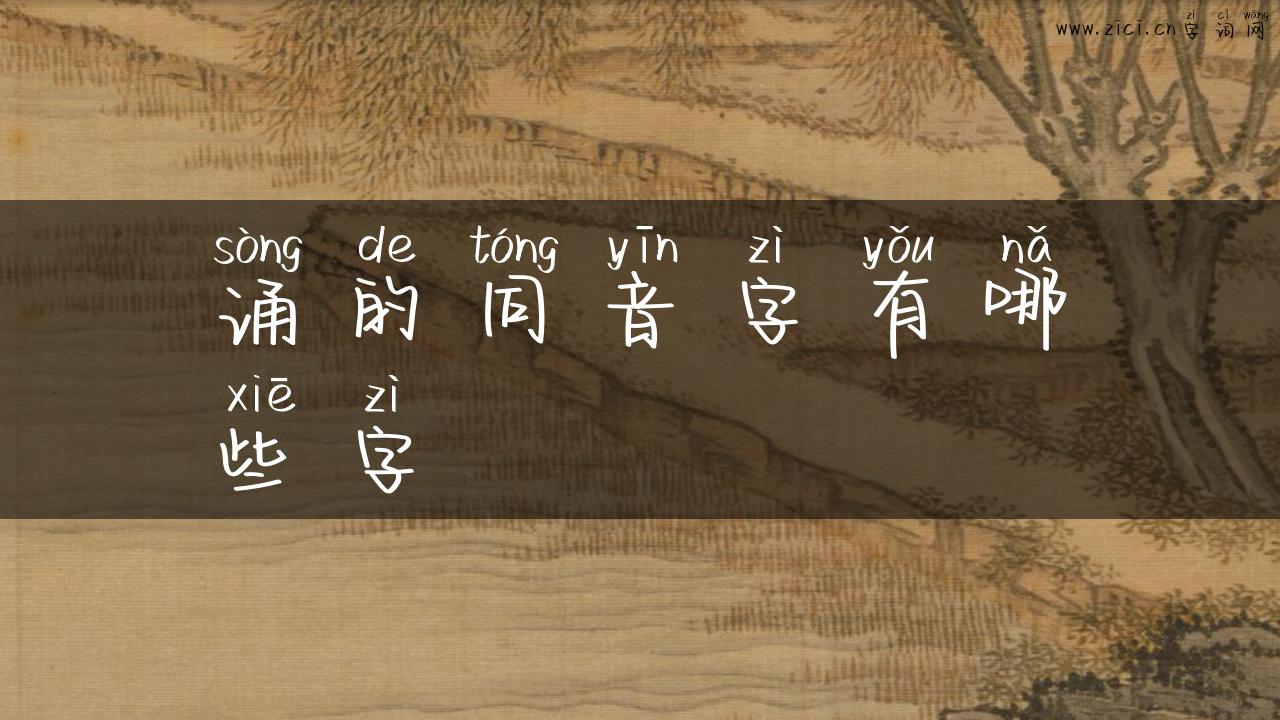 zì cí wǎng
www.zici.cn字 词 网
sòng de tóng yīn zì yǒu nǎ
诵 的 同 音 字 有 哪
xiē zì
些 字